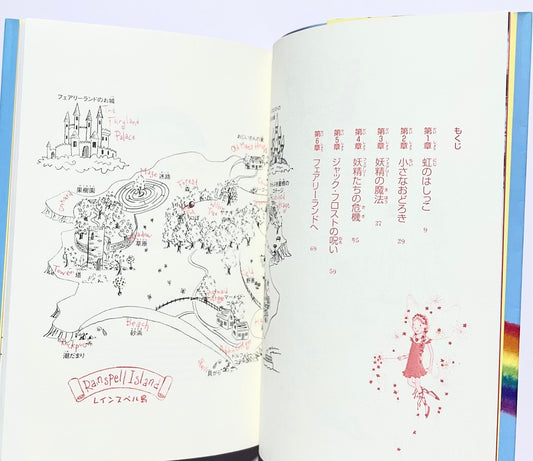 フェアリーランドのお城
The
Fairyland
Palace
Maze
迷路
果樹園
Orchard
Forest
草原
Tower
塔
Beach
砂浜
潮だまり
Rainspell Island
レインスペル島
もくじ
第1章 虹のはしっこ 9
第2章 小さなおどろき 29
第3章 妖精の魔法 37
第4章 妖精たちの危機 45
第5章 ジャック・フロストの呪い 59
第6章 フェアリーランドへ 69